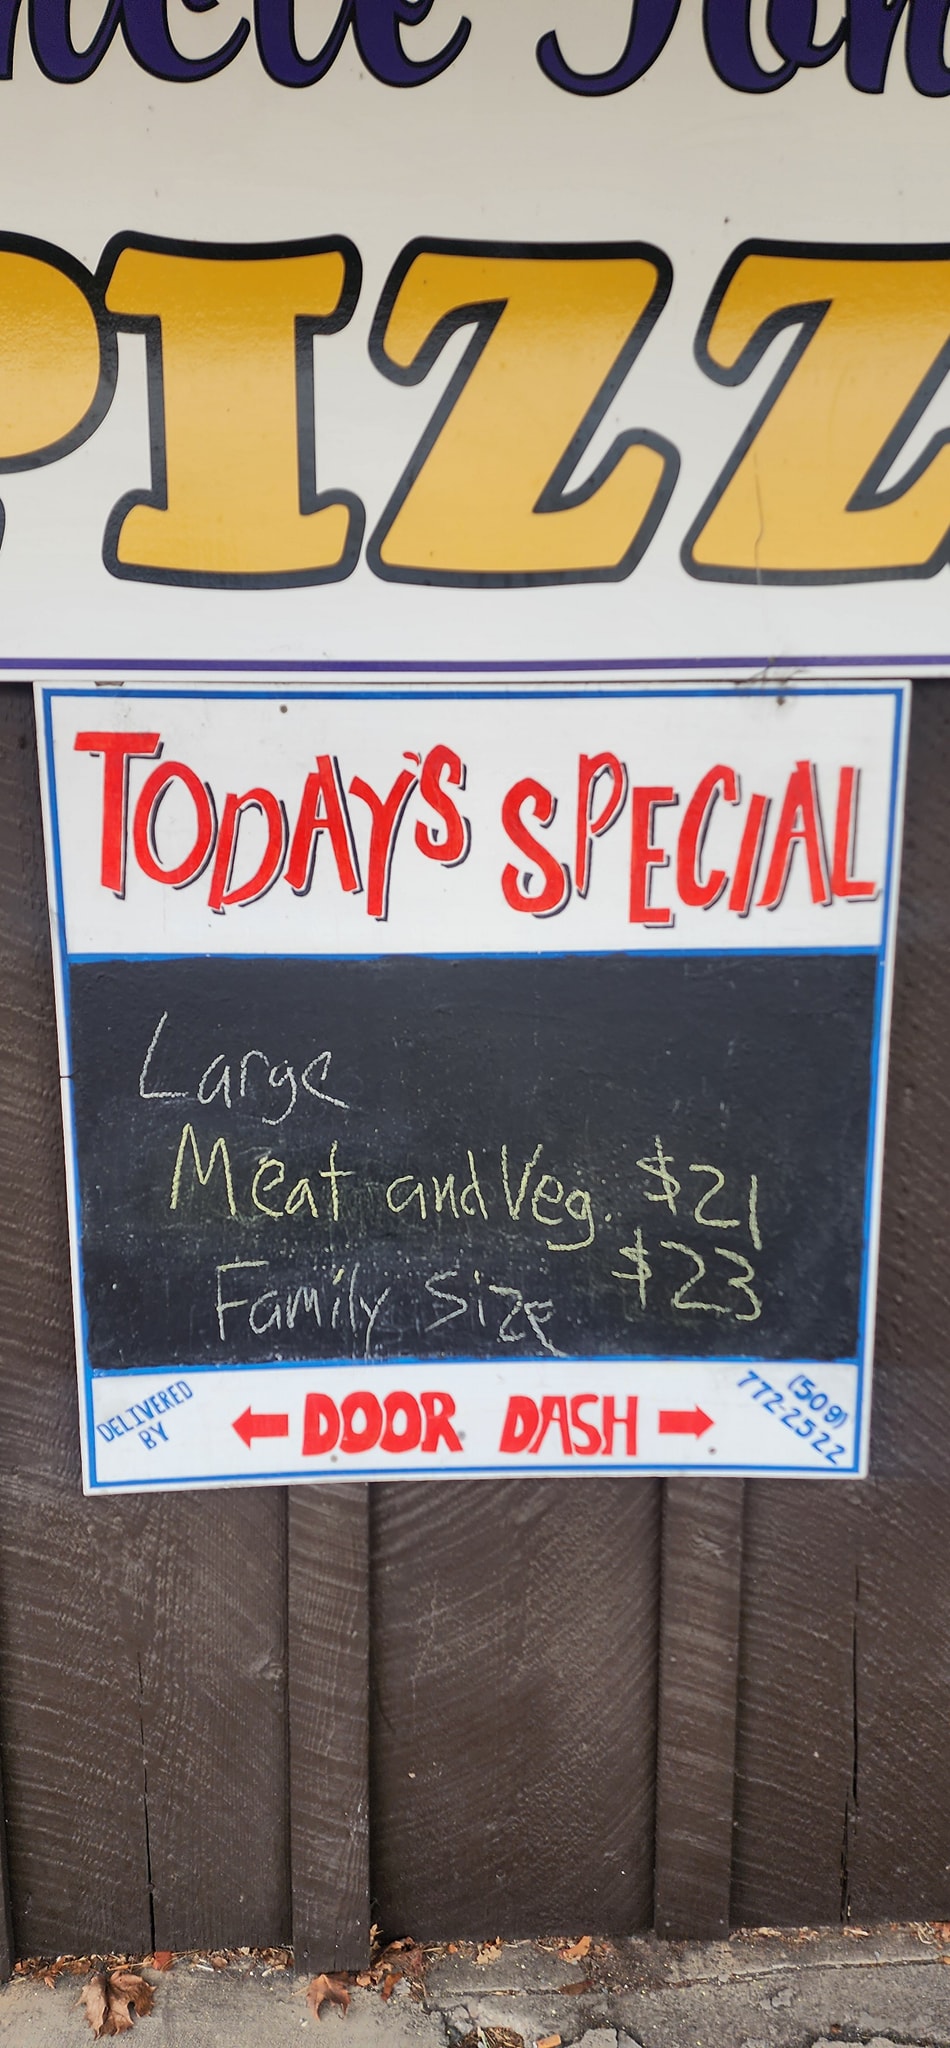 PIZZ
TODAY'S SPECIAL
Large
Meat and Veg. $21
Family Size $23
DELIVERED
BY
DOOR DASH
(509)
772-2522